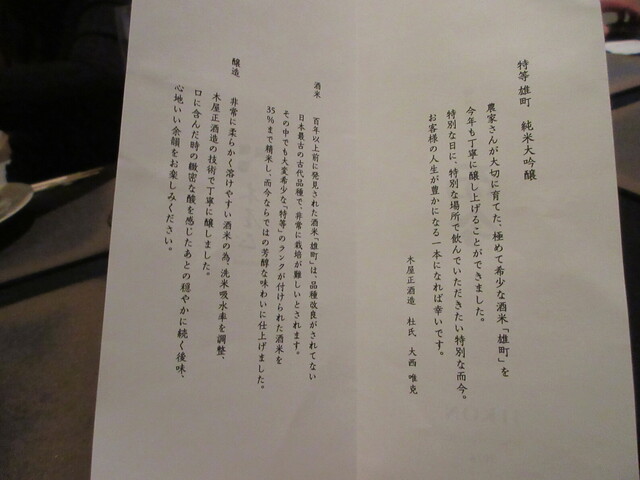 特等 雄町　純米大吟醸
農家さんが大切に育てた、極めて希少な酒米「雄町」を
今年も丁寧に醸し上げることができました。
特別な日に、特別な場所で飲んでいただきたい特別な而今。
お客様の人生が豊かになる一本になれば幸いです。
木屋正酒造　杜氏　大西 唯克
酒米　百年以上前に発見された酒米「雄町」は、品種改良がされてない
日本最古の古代品種で、非常に栽培が難しいとされます。
その中でも大変希少な「特等」のランクが付けられた酒米を
35％まで精米し、而今ならではの芳醇な味わいに仕上げました。
醸造　非常に柔らかく溶けやすい酒米の為、洗米吸水率を調整、
木屋正酒造の技術で丁寧に醸しました。
口に含んだ時の緻密な酸を感じたあとの穏やかに続く後味、
心地いい余韻をお楽しみください。